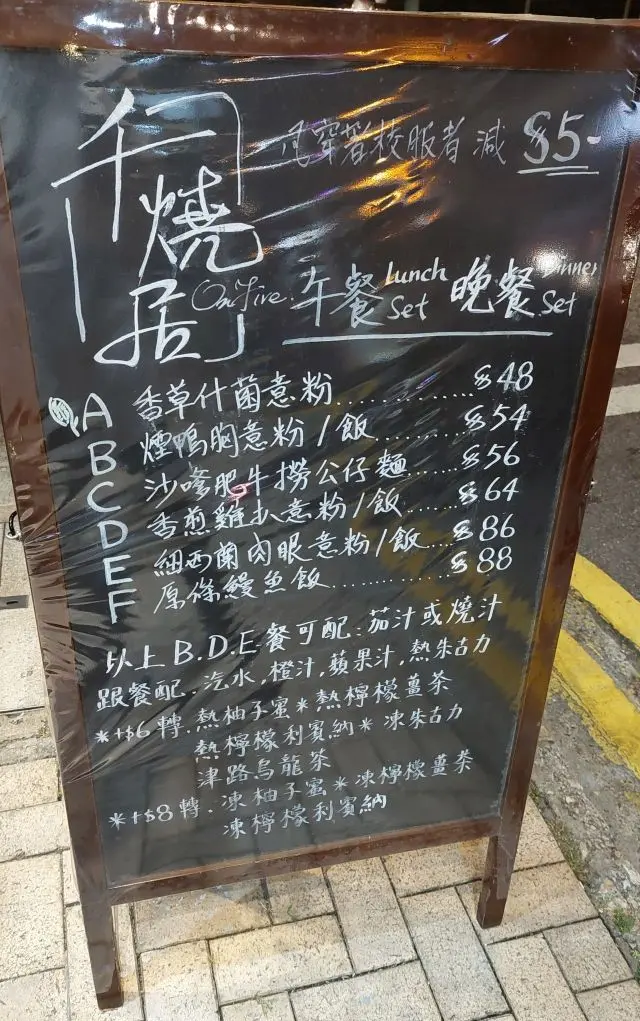 凡穿著校服者 減 $5-
燒
居 On Fire
午餐 Lunch Set 晚餐 Dinner Set
A 香草什菌意粉 $48
B 煙鴨胸意粉/飯 $54
C 沙嗲肥牛撈公仔麵 $56
D 香煎雞扒意粉/飯 $64
E 紐西蘭肉眼意粉/飯 $86
F 原條鰻魚飯 $88
以上 B.D.E 餐可配:茄汁或燒汁
跟餐配.汽水,橙汁,蘋果汁,熱朱古力
*+$6 轉.熱柚子蜜*熱檸檬薑茶
熱檸檬利賓納*凍朱古力
津路烏龍茶
*+$8 轉.凍柚子蜜*凍檸檬薑茶
凍檸檬利賓納